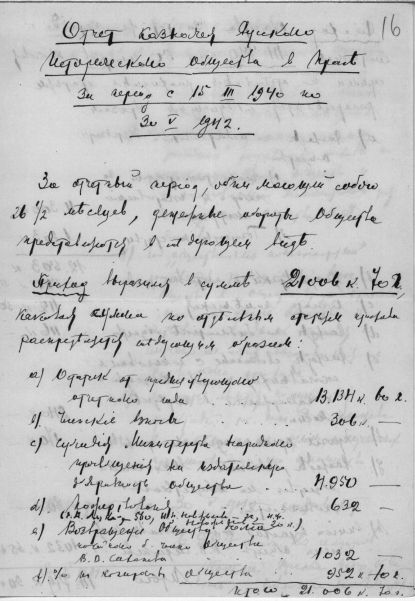 16
Отчет казначея Русского
Исторического общества в Праге
За период с 15 III 1940 по
30 V 1942.
За отчетный период, обнимающий собою
26 1/2 месяцев, денежные обороты Общества
представляются в следующем виде.
Приход выразился в сумме 21.006 к. 70 г.
каковая сумма по отдельным статьям прихода
распределяется следующим образом:
a) Остаток от предшествующего
отчетного года 13.134 к. 60 г.
b) Членские взносы 306 к. —
c) Субсидия Министерства Народного
просвещения на издательскую
деятельность общества 4.950 —
d) Пожертвования 632 —
e) Возвращение Обществу
общества
В. О. 1.032 —
f) % по общества 952 к. 10 г.
Итого 21.006 к. 70 г.